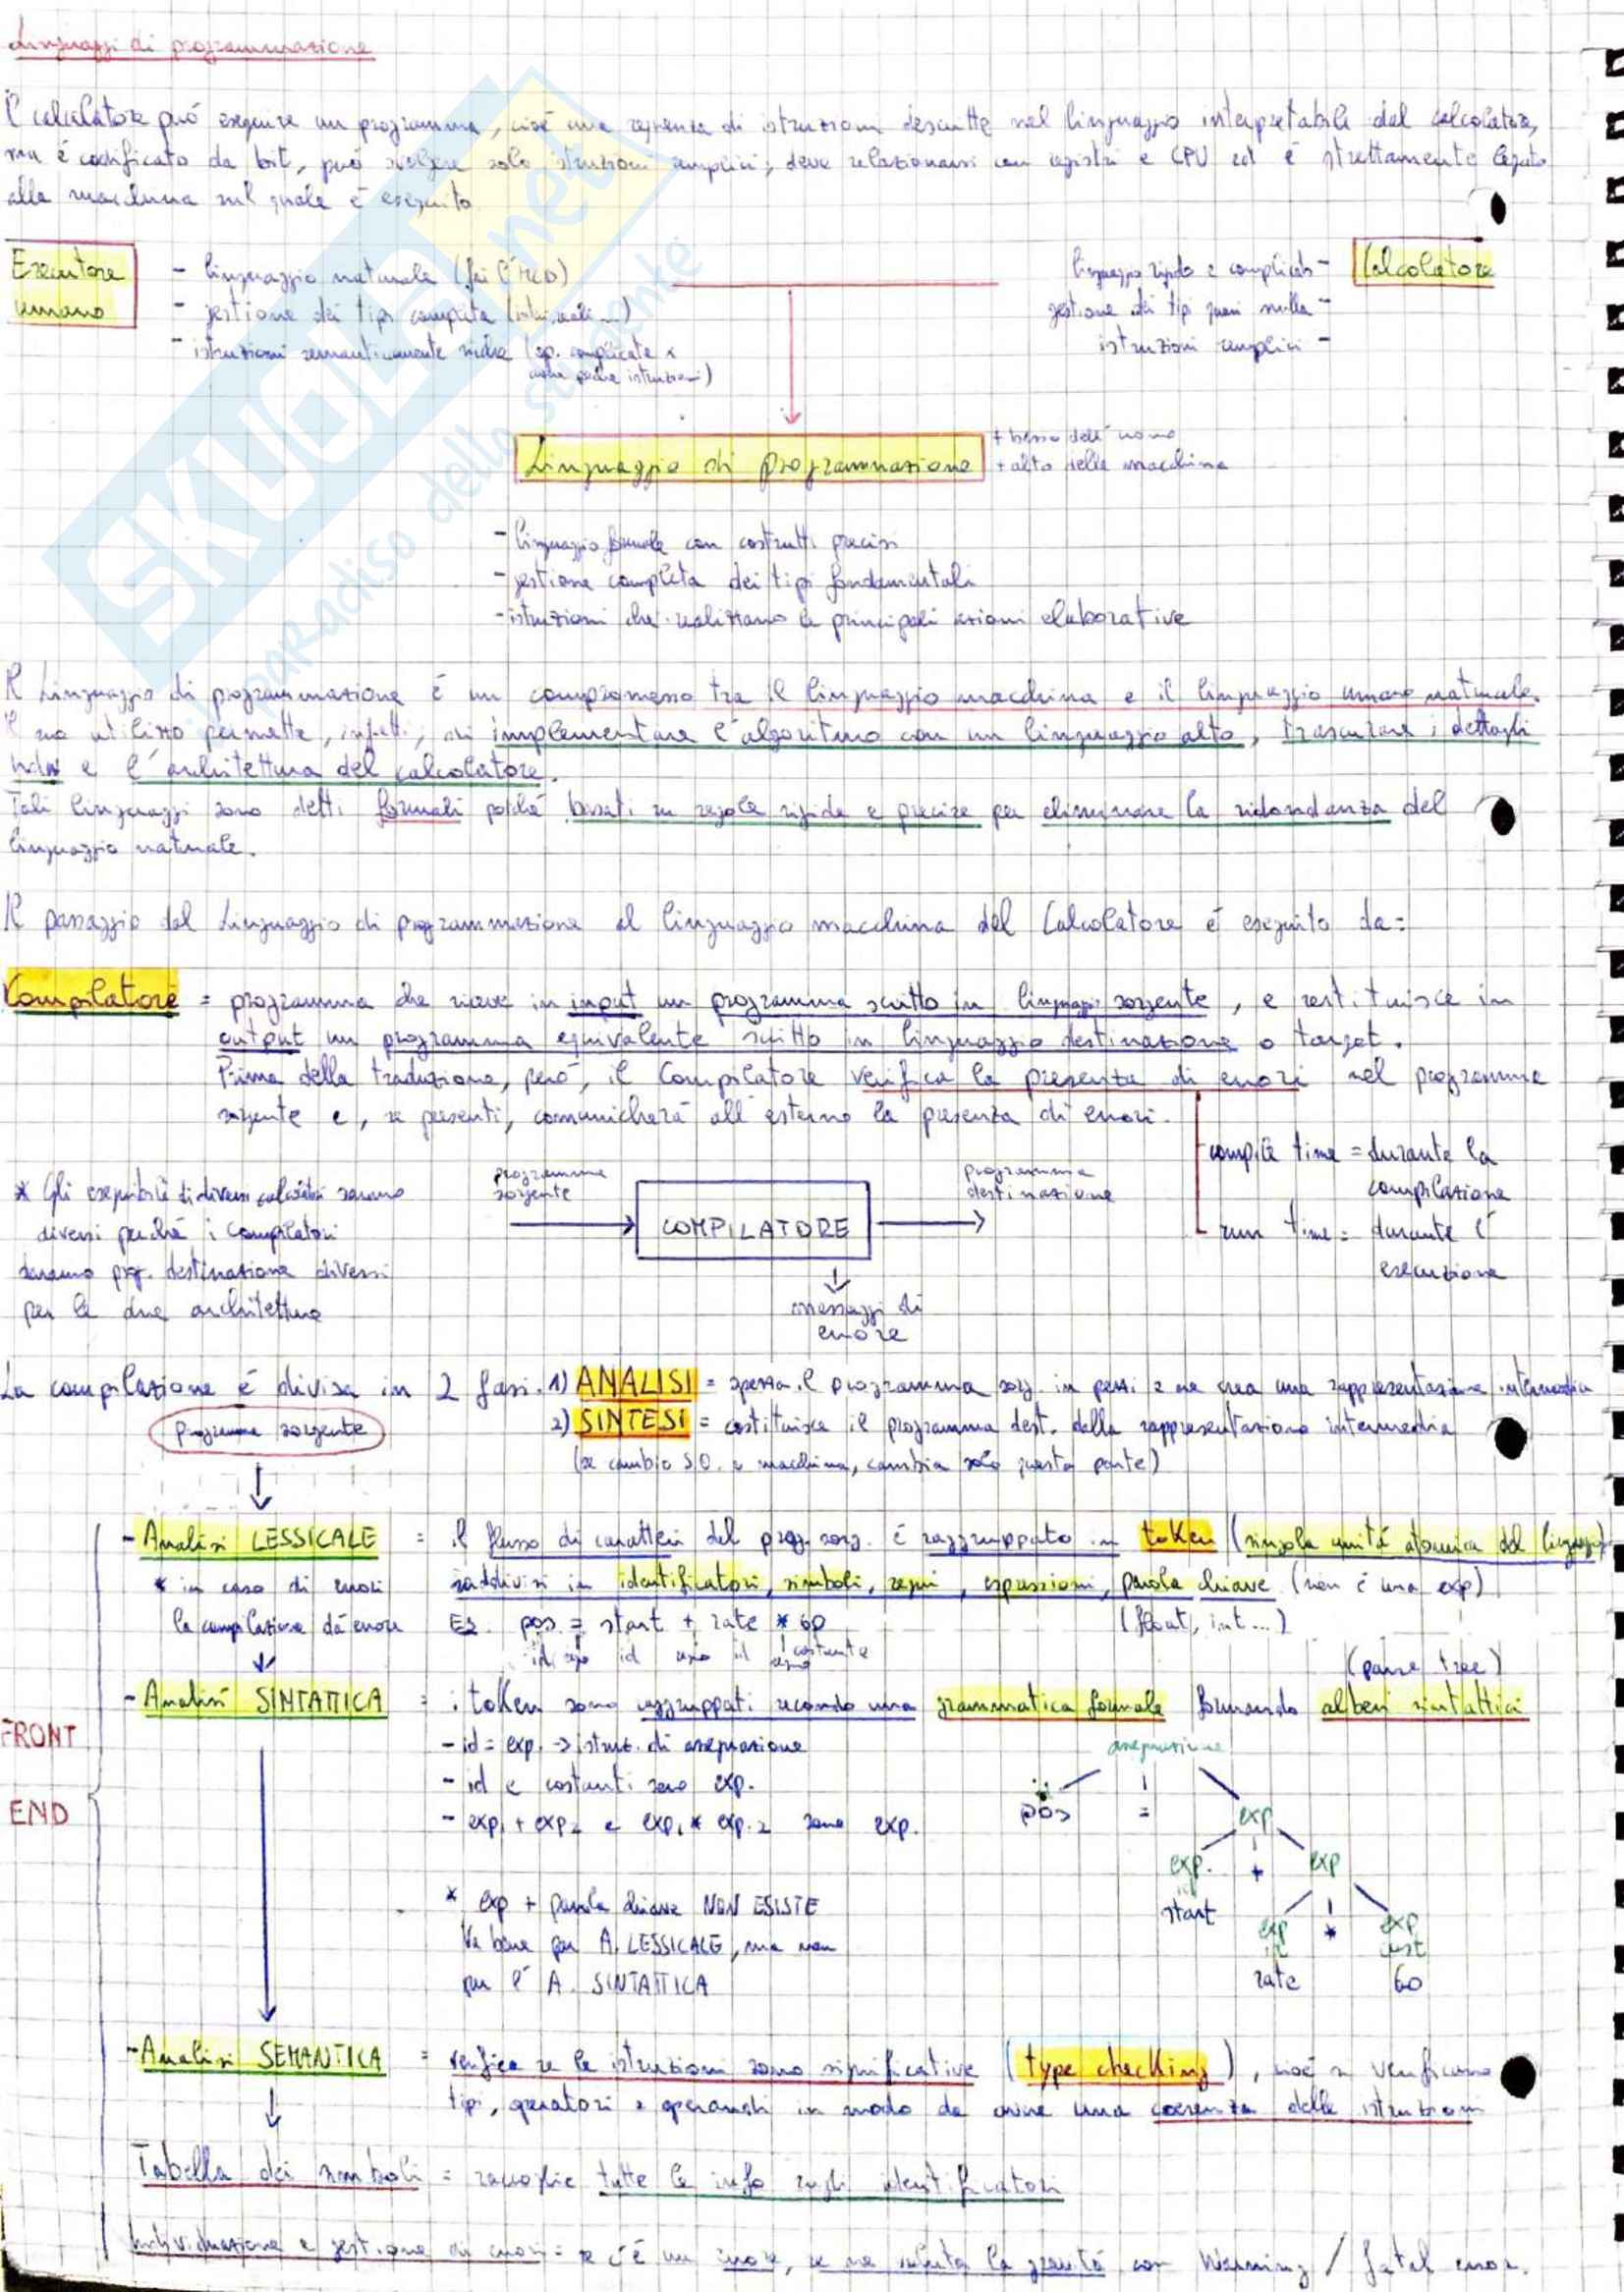 Linguaggi di programmazione
Il calcolatore può eseguire un programma, cioè una sequenza di istruzioni descritte nel linguaggio interpretabile dal calcolatore,
ma è codificato da bit, può svolgere solo istruzioni semplici; deve relazionarsi con registri e CPU ed è strettamente legato
alla macchina sul quale è eseguito.
Esecutore umano
- linguaggio naturale (fai l'MCD)
- gestione dei tipi completa (interi, reali...)
- istruzioni semanticamente ricche (op. complicate x
anche poche istruzioni)
Calcolatore
linguaggio rigido e complicato -
gestione dei tipi quasi nulla -
istruzioni semplici -
Linguaggio di programmazione
+ basso dell'uomo
+ alto della macchina
- linguaggio formale con costrutti precisi
- gestione completa dei tipi fondamentali
- istruzioni che realizzano le principali azioni elaborative
Il Linguaggio di programmazione è un compromesso tra il linguaggio macchina e il linguaggio umano naturale.
Il suo utilizzo permette, infatti, di implementare l'algoritmo con un linguaggio alto, trascurare i dettagli
hdw e l'architettura del calcolatore.
Tali linguaggi sono detti formali poiché basati su regole rigide e precise per eliminare la ridondanza del
linguaggio naturale.
Il passaggio dal Linguaggio di programmazione al linguaggio macchina del Calcolatore è eseguito da:
Compilatore = programma che riceve in input un programma scritto in linguaggio sorgente, e restituisce in
output un programma equivalente scritto in linguaggio destinazione o target.
Prima della traduzione, però, il Compilatore verifica la presenza di errori nel programma
sorgente e, se presenti, comunicherà all'esterno la presenza di errori.
compile time = durante la
compilazione
run time = durante l'
esecuzione
* Gli eseguibili di diversi calcolatori saranno
diversi perché i Compilatori
daranno prog. destinazione diversi
per le due architetture
programma sorgente
COMPILATORE
programma destinazione
messaggi di errore
La compilazione è divisa in 2 fasi. 1) ANALISI = spezza il programma sorg. in pezzi e ne crea una rappresentazione intermedia
2) SINTESI = costituisce il programma dest. dalla rappresentazione intermedia
(se cambio S.O. o macchina, cambia solo questa parte)
Programma sorgente
FRONT END
- Analisi LESSICALE = il flusso di caratteri del prog. sorg. è raggruppato in token (singola unità atomica del linguaggio)
suddivisi in identificatori, simboli, segni, espressioni, parola chiave (non è una exp)
(float, int...)
* in caso di errori
la compilazione dà errore
ES. pos = start + rate * 60
id segno id segno id segno costante
- Analisi SINTATTICA = i token sono raggruppati secondo una grammatica formale formando alberi sintattici
(parse tree)
- id = exp. -> istruz. di assegnazione
- id e costanti sono exp.
- exp1 + exp2 e exp1 * exp.2 sono exp.
* exp + parola chiave NON ESISTE
Va bene per A. LESSICALE, ma non
per l'A. SINTATTICA
assegnazione
pos = exp
exp. + exp
start
exp * exp
id cost
rate 60
- Analisi SEMANTICA = verifica se le istruzioni sono significative (type checking), cioè si verificano
tipi, operatori e operandi in modo da avere una coerenza delle istruzioni
Tabella dei simboli = raccoglie tutte le info sugli identificatori
Individuazione e gestione di errori = se c'è un errore, se ne valuta la gravità con Warning / fatal error.
SKUOLA.net
il paradiso dello studente